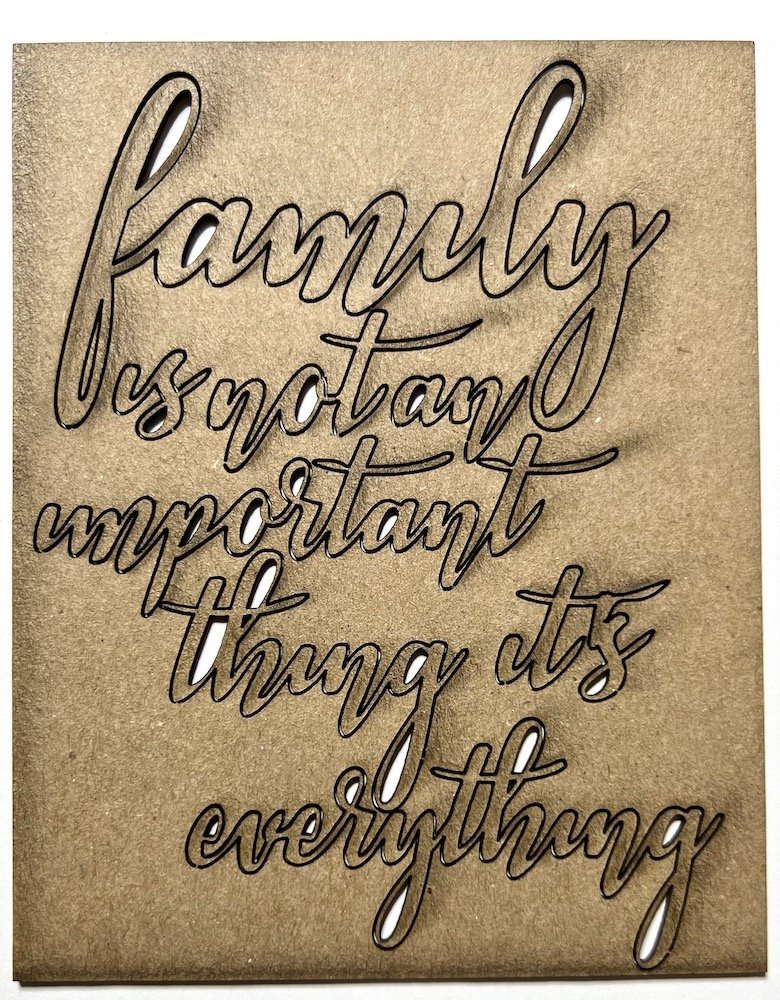 family
is not an
important
thing it's
everything